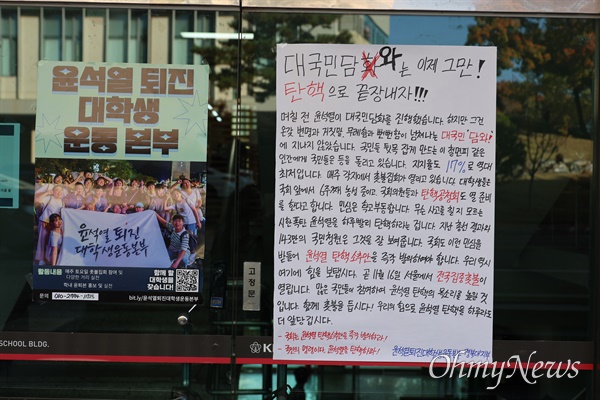 윤석열 퇴진
대학생
운동 본부
윤석열 퇴진
대학생운동본부
활동내용
매주 토요일 촛불집회 참여 및
다양한 거리 실천
학내 윤퇴본 홍보 및 실천
문의
함께 할
대학생을
찾습니다!
bit.ly/윤석열퇴진대학생운동본부
고정문
SCHOOL BLDG.
대국민담화와는 이제 그만!
탄핵으로 끝장내자!!!
며칠 전 윤석열이 대국민담화를 진행했습니다. 하지만 그건
온갖 변명과 거짓말, 무례함과 뻔뻔함이 넘쳐나는 대국민 '담와'
에 지나지 않았습니다. 국민들 뒷목 잡게 만드는 이 철면피 같은
인간에게 국민들은 등을 돌리고 있습니다. 지지율도 17%로 역대
최저입니다. 매주 각지에서 촛불집회가 열리고 있습니다. 대학생들은
국회 앞에서 농성 중이고, 국회의원들과 탄핵공청회도 열 준비
를 한다고 합니다. 민심은 최고부동합니다. 무슨 사고를 칠지 모르는
시한폭탄 윤석열을 하루빨리 탄핵하라는 겁니다. 지난 총선 결과와
143만의 국민청원은 그것을 잘 보여줍니다. 국회도 이런 민심을
받들어 윤석열 탄핵소추안을 즉각 발의해야 합니다. 우리 역시
여기에 힘을 보탭시다. 곧 11월 16일 서울에서 전국집중촛불이
열립니다. 많은 국민들이 참여하여 윤석열 탄핵의 목소리를 높일 것
입니다. 함께 촛불을 듭시다! 우리의 힘으로 윤석열 탄핵을 하루라도
더 앞당깁시다.
- 국회는 윤석열 탄핵소추안을 즉각 발의하라!
- 국민의 명령이다, 윤석열을 탄핵하라!
윤석열퇴진대학생운동본부
OhmyNews